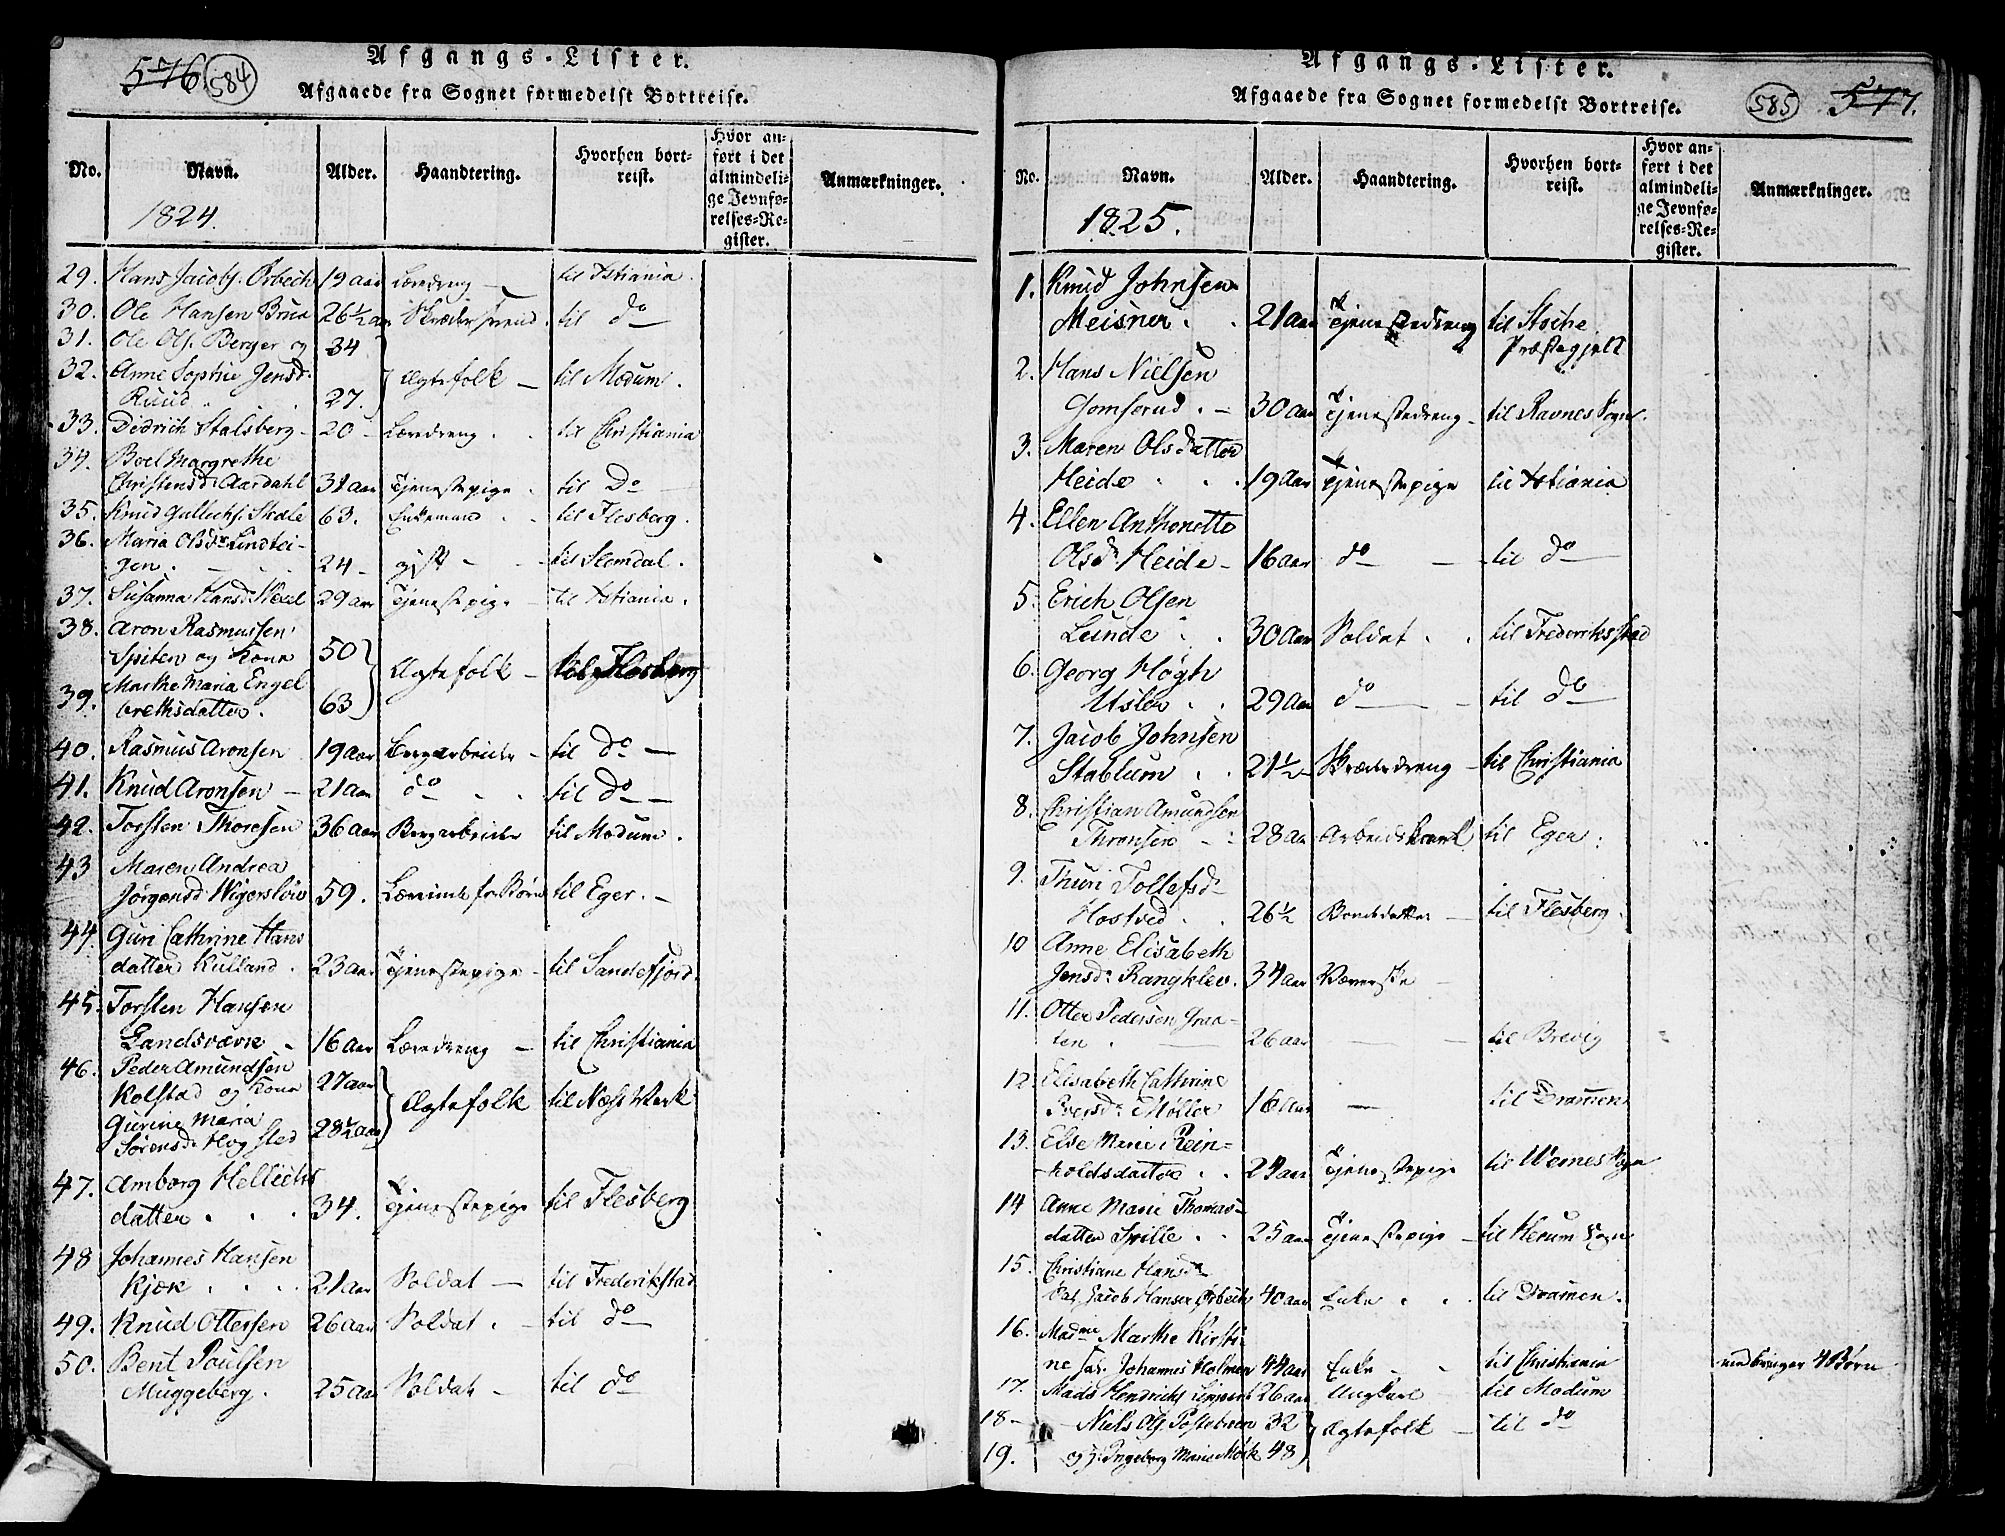 576. 584
Afgangs-Lister.
Afgaaede fra Sognet formedelst Bortreise.
No. Navn. Alder. Haandtering. Hvorhen bortreist. Hvor anført i det almindelige Jevnførelses-Register. Anmærkninger.
1824.
29. Hans Jacobs. Ørbech 19 aar Læredreng — til Xstiania.
30. Ole Hansen Bruu 26½ aar Skrædersvend. til do —
31. Ole Ols. Berger og 34
32. Anne Sophie Jensd. Ægtefolk — til Modum.
Ruud 27.
33. Didrich Stalsberg — 20 — Læredreng . til Christiania
34. Boel Margrethe
Christensd. Aardahl 31 aar Tjenestepige . til Do —
35. Knud Gullichs. Skale 63. Enkemand . til Flesberg.
36. Maria Olsdr. Lindtei-
gen. 24 — gift — til Slemdal.
37. Susanna Hansd. 29 aar Tjenestepige — til Xstiania.
38. Aron Rasmussen
Spiten og Kone 50 Ægtefolk — til Flesberg
39. Marthe Maria Engel
brethsdatter. 63
40. Rasmus Aronsen 19 aar Bergarbeider — til do —
41. Knud Aronsen — 21 aar do . . til do —
42. Torsten Thoresen 36 aar Bergarbeider til Modum.
43 Maren Andrea
Jørgensd. Wigersløv 59. Lærerinde for Børn til Eger. —
44. Guri Cathrine Hans
datter Kulland. 23 aar Tjenestepige — til Sandefjord.
45. Torsten Hansen
Landsværk — 16 aar Læredreng — til Christiania
46. Peder Amundsen
Kolstad og Kone 27 aar Ægtefolk til Næss Værk
Gurine Maria
Sørensd. Hogsted 28½ aar
47. Amborg Hellichs
datter . . . 34. Tjenestepige til Flesberg
48 Johannes Hansen
Kjæk . . . 21 aar Soldat — til Frederikstad
49. Knud Ottersen 26 aar Soldat . — til do —
50. Bent Poulsen
Muggeberg. 25 aar Soldat — til do —
Afgangs-Lister.
Afgaaede fra Sognet formedelst Bortreise.
585 577.
No. Navn. Alder. Haandtering. Hvorhen bortreist. Hvor anført i det almindelige Jevnførelses-Register. Anmærkninger.
1825.
1. Knud Johnsen
Meisner . . 21 aar Tjenestedreng til Stoche
Præstegjelt
2. Hans Nielsen
Gomserud . — 30 aar Tjenestedreng — til Ravnes Sogn.
3. Maren Olsdatter
Heide . . . 19 aar Tjenestepige til Xstiania
4. Ellen Anthonette
Olsdr. Heide — 16 aar do — til do —
5. Erich Olsen
Lunde . . 30 aar Soldat . . til Frederiksstad
6. Georg Høgh
Usler . . 29 aar do — til do —
7. Jacob Johnsen
Stablum . . 21½ — Skræderdreng — til Christiania
8. Christian Amundsen
Thronsen — 28 aar Arbeidskarl til Eger.
9. Thuri Tollefsdr.
Hostved . . 26½ Bondedatter — til Flesberg.
10 Anne Elisabeth
Jensdr. Rangklev. 34 aar Væverske —
11. Otter Pedersen Graa-
ten . — 26 aar — — til Brevig
12. Elisabeth Cathrine
Iversdr. Møller 16 aar — til Drammen
13. Else Marie Rein-
holdsdatter . . 24 aar Tjenestepige til Wernes Sogn
14 Anne Marie Thomas-
datter Spille . . 25 aar Tjenestepige — til Herum Sogn
15. Christiane Hansdr.
Sal. Jacob Hansen Ørbech 40 aar Enke . . til Dramen.
16. Madme Marthe Kirsti-
ne sal. Johannes Holmen 44 aar Enke — til Christiania medbringer 4 Børn
17. Mads Hendrichs. 26 aar Ungkarl til Modum
18 — Niels Ols. 32 Ægtefolk — til do
19. og H. Ingeborg Marie Mørk 48